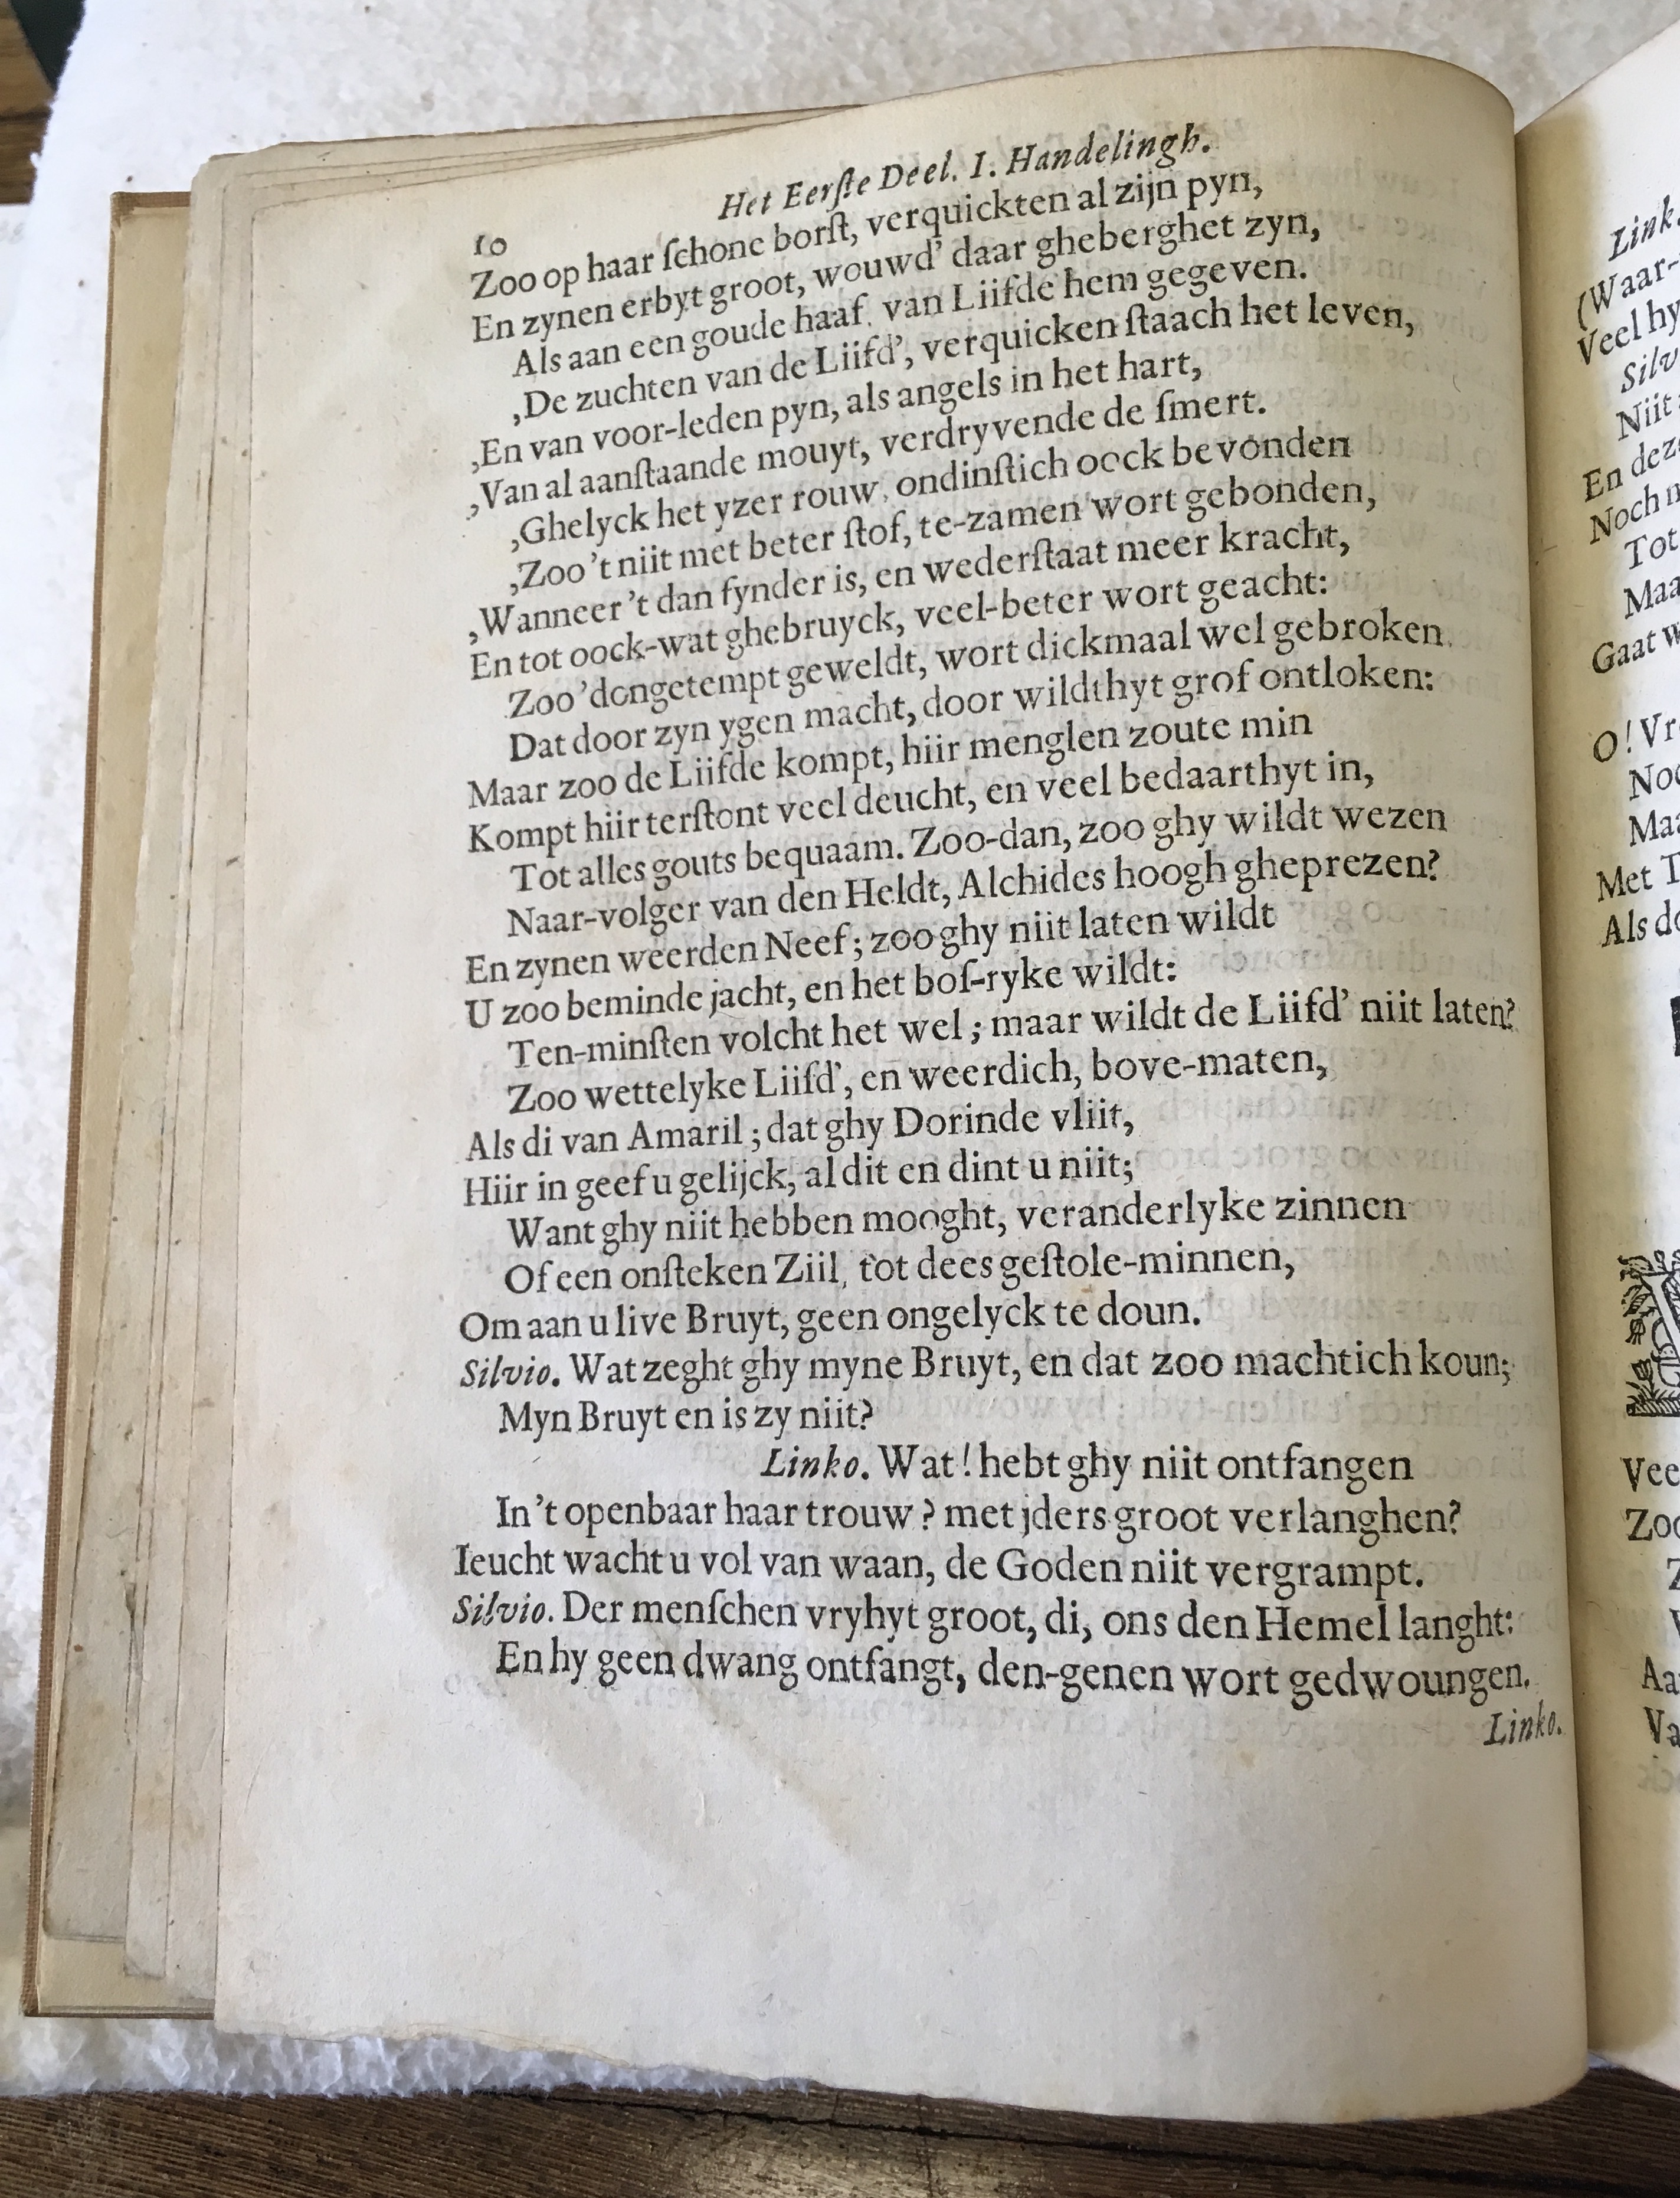 Het Eerſte Deel. I. Handelingh.
10
Zoo op haar ſchone borſt, verquickten al zijn pyn,
En zynen erbyt groot, wouwd' daar gheberghet zyn,
Als aan een goude haaf, van Liifde hem gegeven.
‚De zuchten van de Liifd', verquicken ſtaach het leven,
‚En van voor-leden pyn, als angels in het hart,
‚Van al aanſtaande mouyt, verdryvende de ſmert.
‚Ghelyck het yzer rouw, ondinſtich oock bevonden
‚Zoo 't niit met beter ſtof, te-zamen wort gebonden,
‚Wanneer 't dan fynder is, en wederſtaat meer kracht,
En tot oock-wat ghebruyck, veel-beter wort geacht:
Zoo 'dongetempt geweldt, wort dickmaal wel gebroken,
Dat door zyn ygen macht, door wildthyt grof ontloken:
Maar zoo de Liifde kompt, hiir menglen zoute min
Kompt hiir terſtont veel deucht, en veel bedaarthyt in,
Tot alles gouts bequaam. Zoo-dan, zoo ghy wildt wezen
Naar-volger van den Heldt, Alchides hoogh gheprezen?
En zynen weerden Neef; zoo ghy niit laten wildt
U zoo beminde jacht, en het boſ-ryke wildt:
Ten-minſten volcht het wel; maar wildt de Liifd' niit laten?
Zoo wettelyke Liifd', en weerdich, bove-maten,
Als di van Amaril; dat ghy Dorinde vliit,
Hiir in geef u gelijck, al dit en dint u niit;
Want ghy niit hebben mooght, veranderlyke zinnen
Of een onſteken Ziil, tot dees geſtole-minnen,
Om aan u live Bruyt, geen ongelyck te doun.
Silvio. Wat zeght ghy myne Bruyt, en dat zoo machtich koun;
Myn Bruyt en is zy niit?
Linko. Wat! hebt ghy niit ontfangen
In 't openbaar haar trouw? met jders groot verlanghen?
Ieucht wacht u vol van waan, de Goden niit vergrampt.
Silvio. Der menſchen vryhyt groot, di, ons den Hemel langht:
En hy geen dwang ontfangt, den-genen wort gedwoungen.
Linko.
Link.
(Waar-
Veel hy
Silv
Niit
En deze
Noch
Tot
Maa
Gaat
O! Vr
Noc
Maa
Met T
Als do
Vee
Zoo
Z
Aa
Va